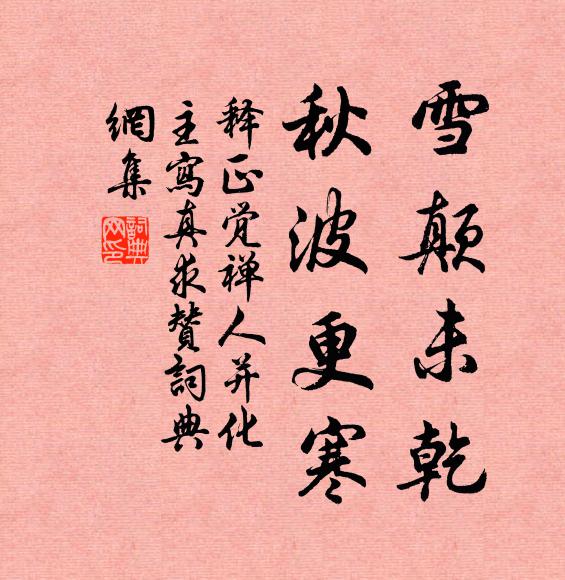 雪颠未乾
秋波更寒
释正觉禅人并化
主寫真求赞詞典
網集
詞典网印